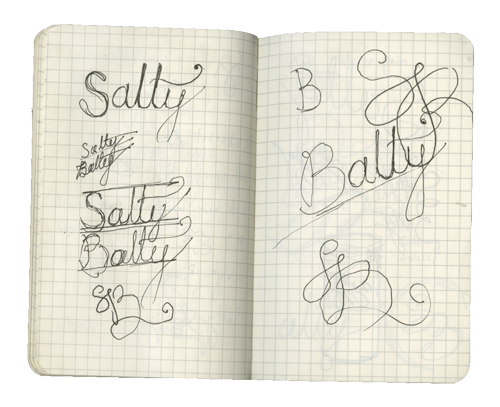 Salty
Salty
Balty
Salty
Balty
SB
B
SB
Balty
SB